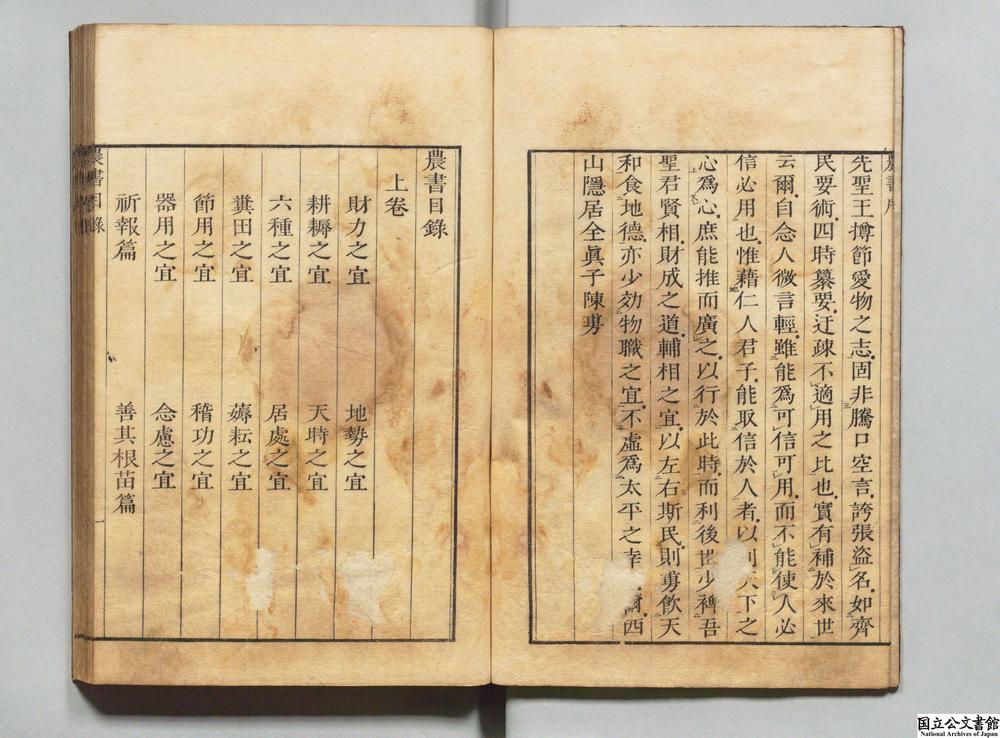 先聖王撙節愛物之志固非騰口空言誇張盜名如齊
民要術四時纂要迂疎不適用之比也實有補於來世
云爾自念人微言輕雖能爲可信可用而不能使人必
信必用也惟藉仁人君子能取信於人者以利天下之
心爲心庶能推而廣之以行於此時而利後世少裨吾
聖君賢相財成之道輔相之宜以左右斯民則旉飲天
和食地德亦少効物職之宜不虛爲太平之幸 爾西
山隱居全眞子陳旉
農書目錄
上卷
財力之宜 地勢之宜
耕耨之宜 天時之宜
六種之宜 居處之宜
糞田之宜 薅耘之宜
節用之宜 稽功之宜
器用之宜 念慮之宜
祈報篇 善其根苗篇
農書目錄
国立公文書館
National Archives of Japan